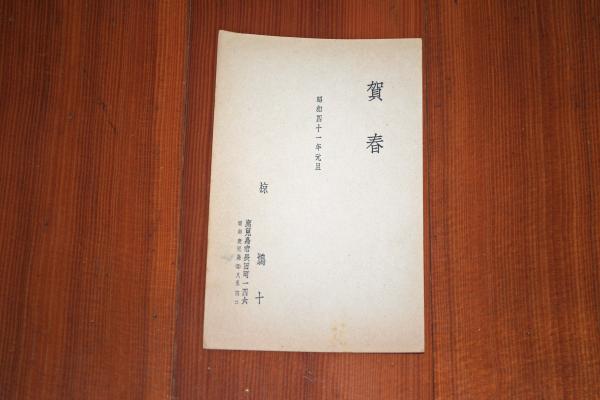 賀春
昭和四十一年元旦
椋鳩十
鹿児島市長田町一四六
電話鹿児島②